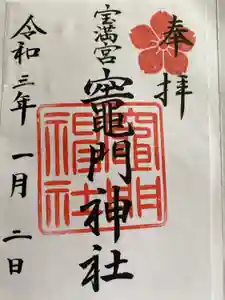 奉拝
宝満宮
竈門神社
竈門神社
令和三年 一月 二日